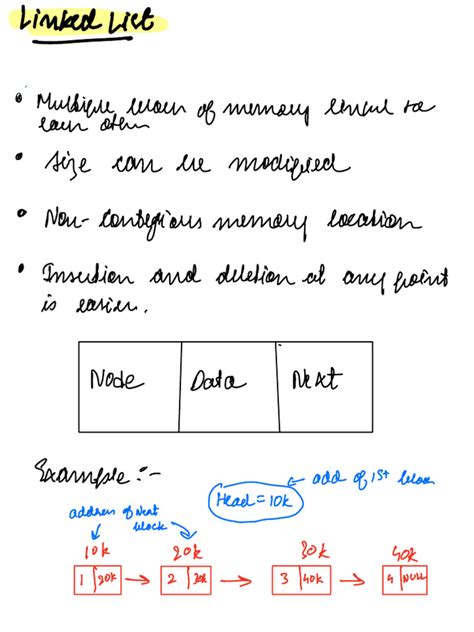 Linked List
• Multiple block of memory linked to
each other
• Size can be modified
• Non-contegious memory location
• Insertion and deletion at any point
is easier.
Node Data Next
Example :-
Head = 10k ← add of 1st block
address of Next
block
10k 20k 30k 40k
1 20k → 2 30k → 3 40k → 4 NULL